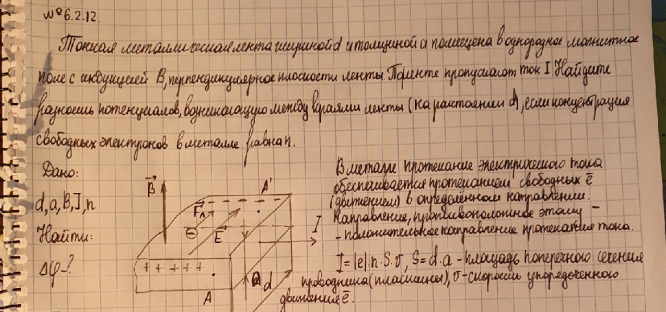 № 6.2.12.
Тонкая металлическая лента шириной d и толщиной a помещена в однородное магнитное
поле с индукцией B, перпендикулярное плоскости ленты. По ленте пропускают ток I. Найдите
разность потенциалов, возникающую между краями ленты (на расстоянии d), если концентрация
свободных электронов в металле равна n.
Дано:
d, a, B, I, n
Найти:
Δφ-?
B
A'
Fл
E
I
+ + + + +
A
a
d
В металле протекание электрического тока
обеспечивается протеканием свободных e
(движением) в определённом направлении.
Направление, противоположное этому –
– положительное направление протекания тока.
I=|e|·n·S·v, S=d·a - площадь поперечного сечения
проводника (пластины), v - скорость упорядоченного
движения e.